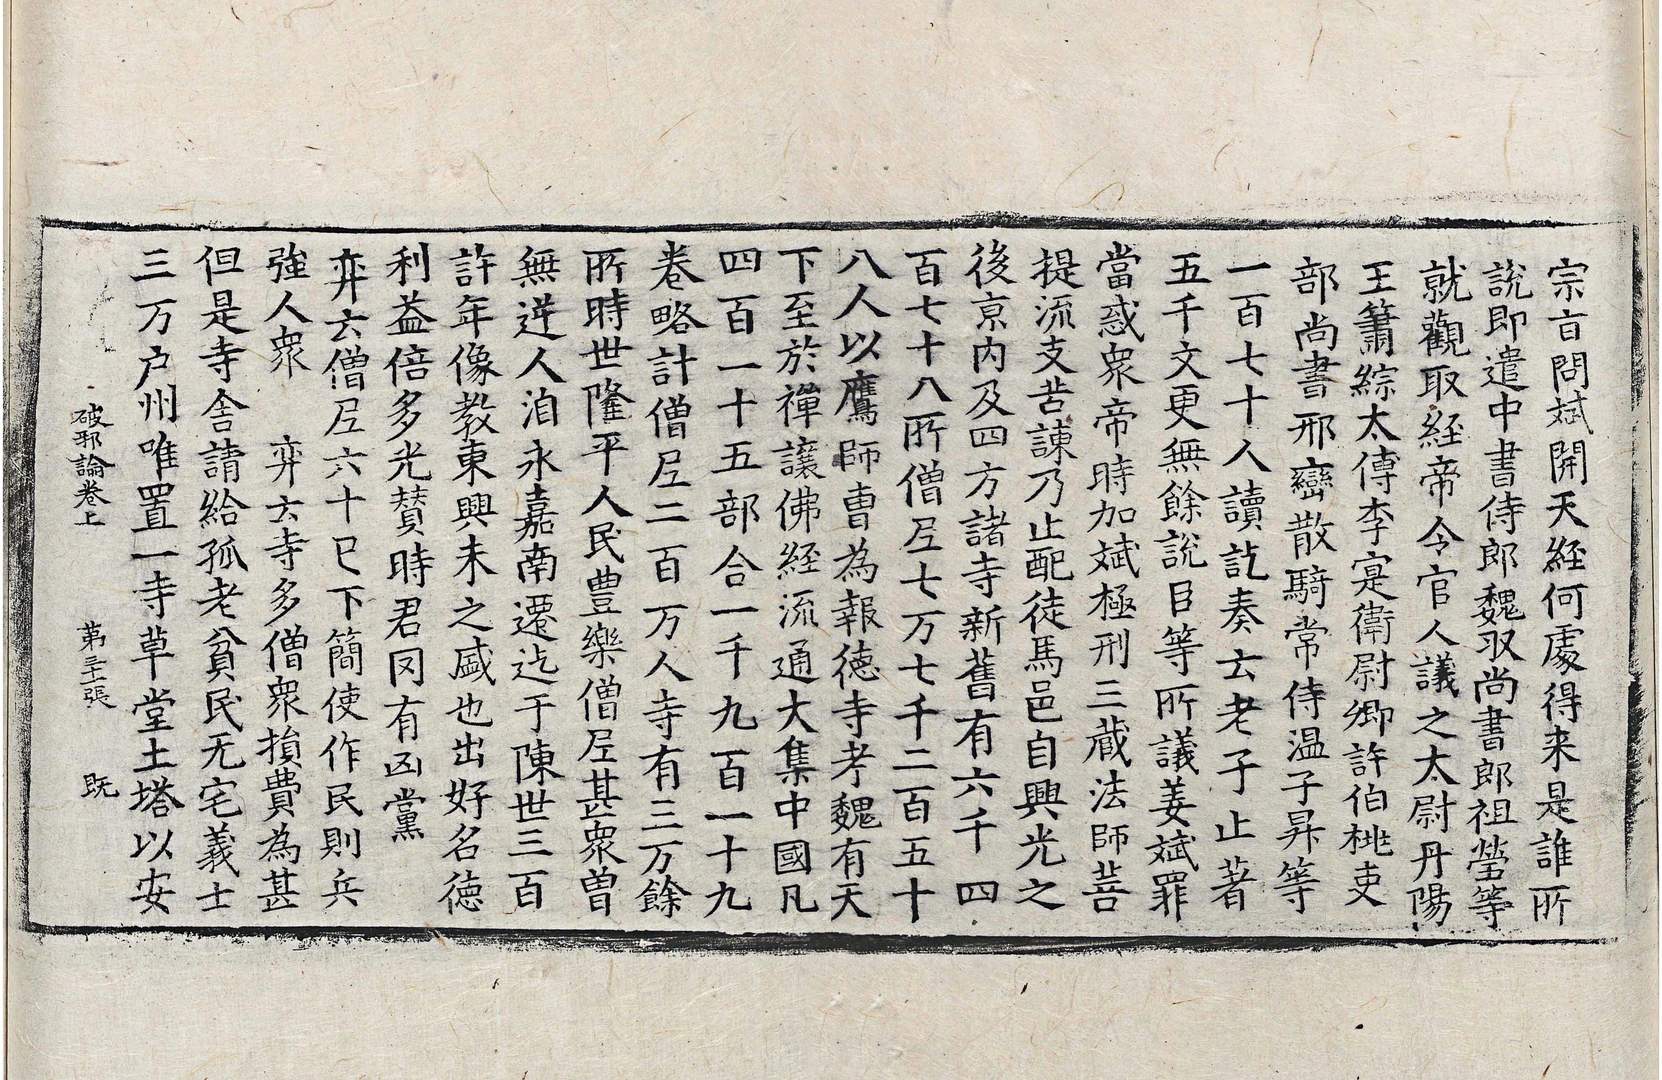 宗言問斌開天經何處得来是誰所
說即遣中書侍郎魏収尚書郎祖瑩等
就觀取経帝令官人議之太尉丹陽
王簫綜太傅李寔衛尉卿許伯桃吏
部尚書邢巒散騎常侍温子昇等
一百七十人讀訖奏云老子止著
五千文更無餘說臣等所議姜斌罪
當惑衆帝時加斌極刑三蔵法師菩
提流支苦諫乃止配徒馬邑自興光之
後亰内及四方諸寺新舊有六千四
百七十八所僧尼七万七千二百五十
八人以鷹師曹為報德寺孝魏有天
下至於禪讓佛経流通大集中國凡
四百一十五部合一千九百一十九
巻略計僧尼二百万人寺有三万餘
所時世隆平人民豊樂僧尼甚衆曽
無逆人洎永嘉南遷迄于陳世三百
許年像教東興未之盛也出好名德
利益倍多光賛時君罔有凶黨
弈云僧尼六十已下簡使作民則兵
強人衆　弈云寺多僧衆損費為甚
但是寺舎請給孤老貧民无宅義士
三万户州唯置一寺草堂土塔以安
破邪論巻上　第三十張　既